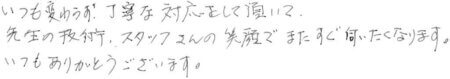 いつも変わらず、丁寧な対応をして頂いて、
先生の技術、スタッフさんの笑顔でまたすぐ伺いたくなります。
いつもありがとうございます。